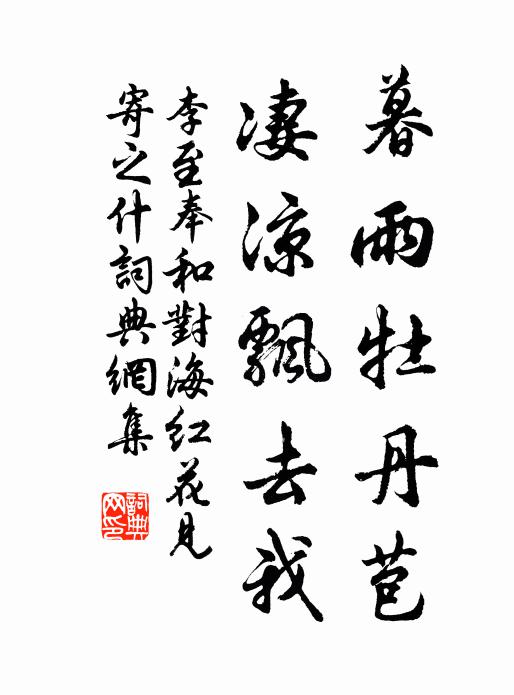 暮雨牡丹芭
凄涼飄去我
李至奉和對海紅花見
寄之什詞典網集
詞典
网印